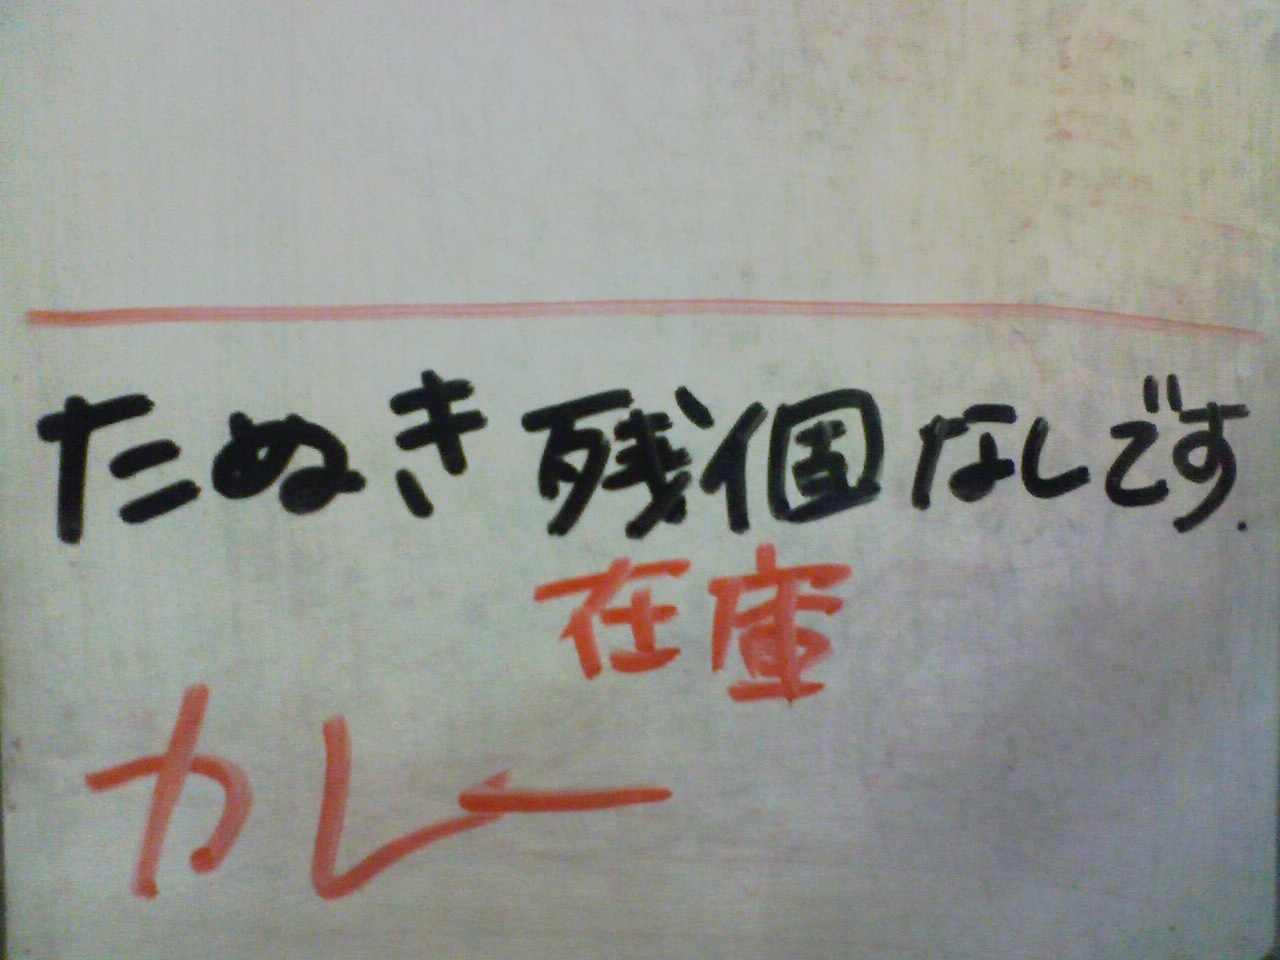 たぬき残個なしです.
在庫
カレー